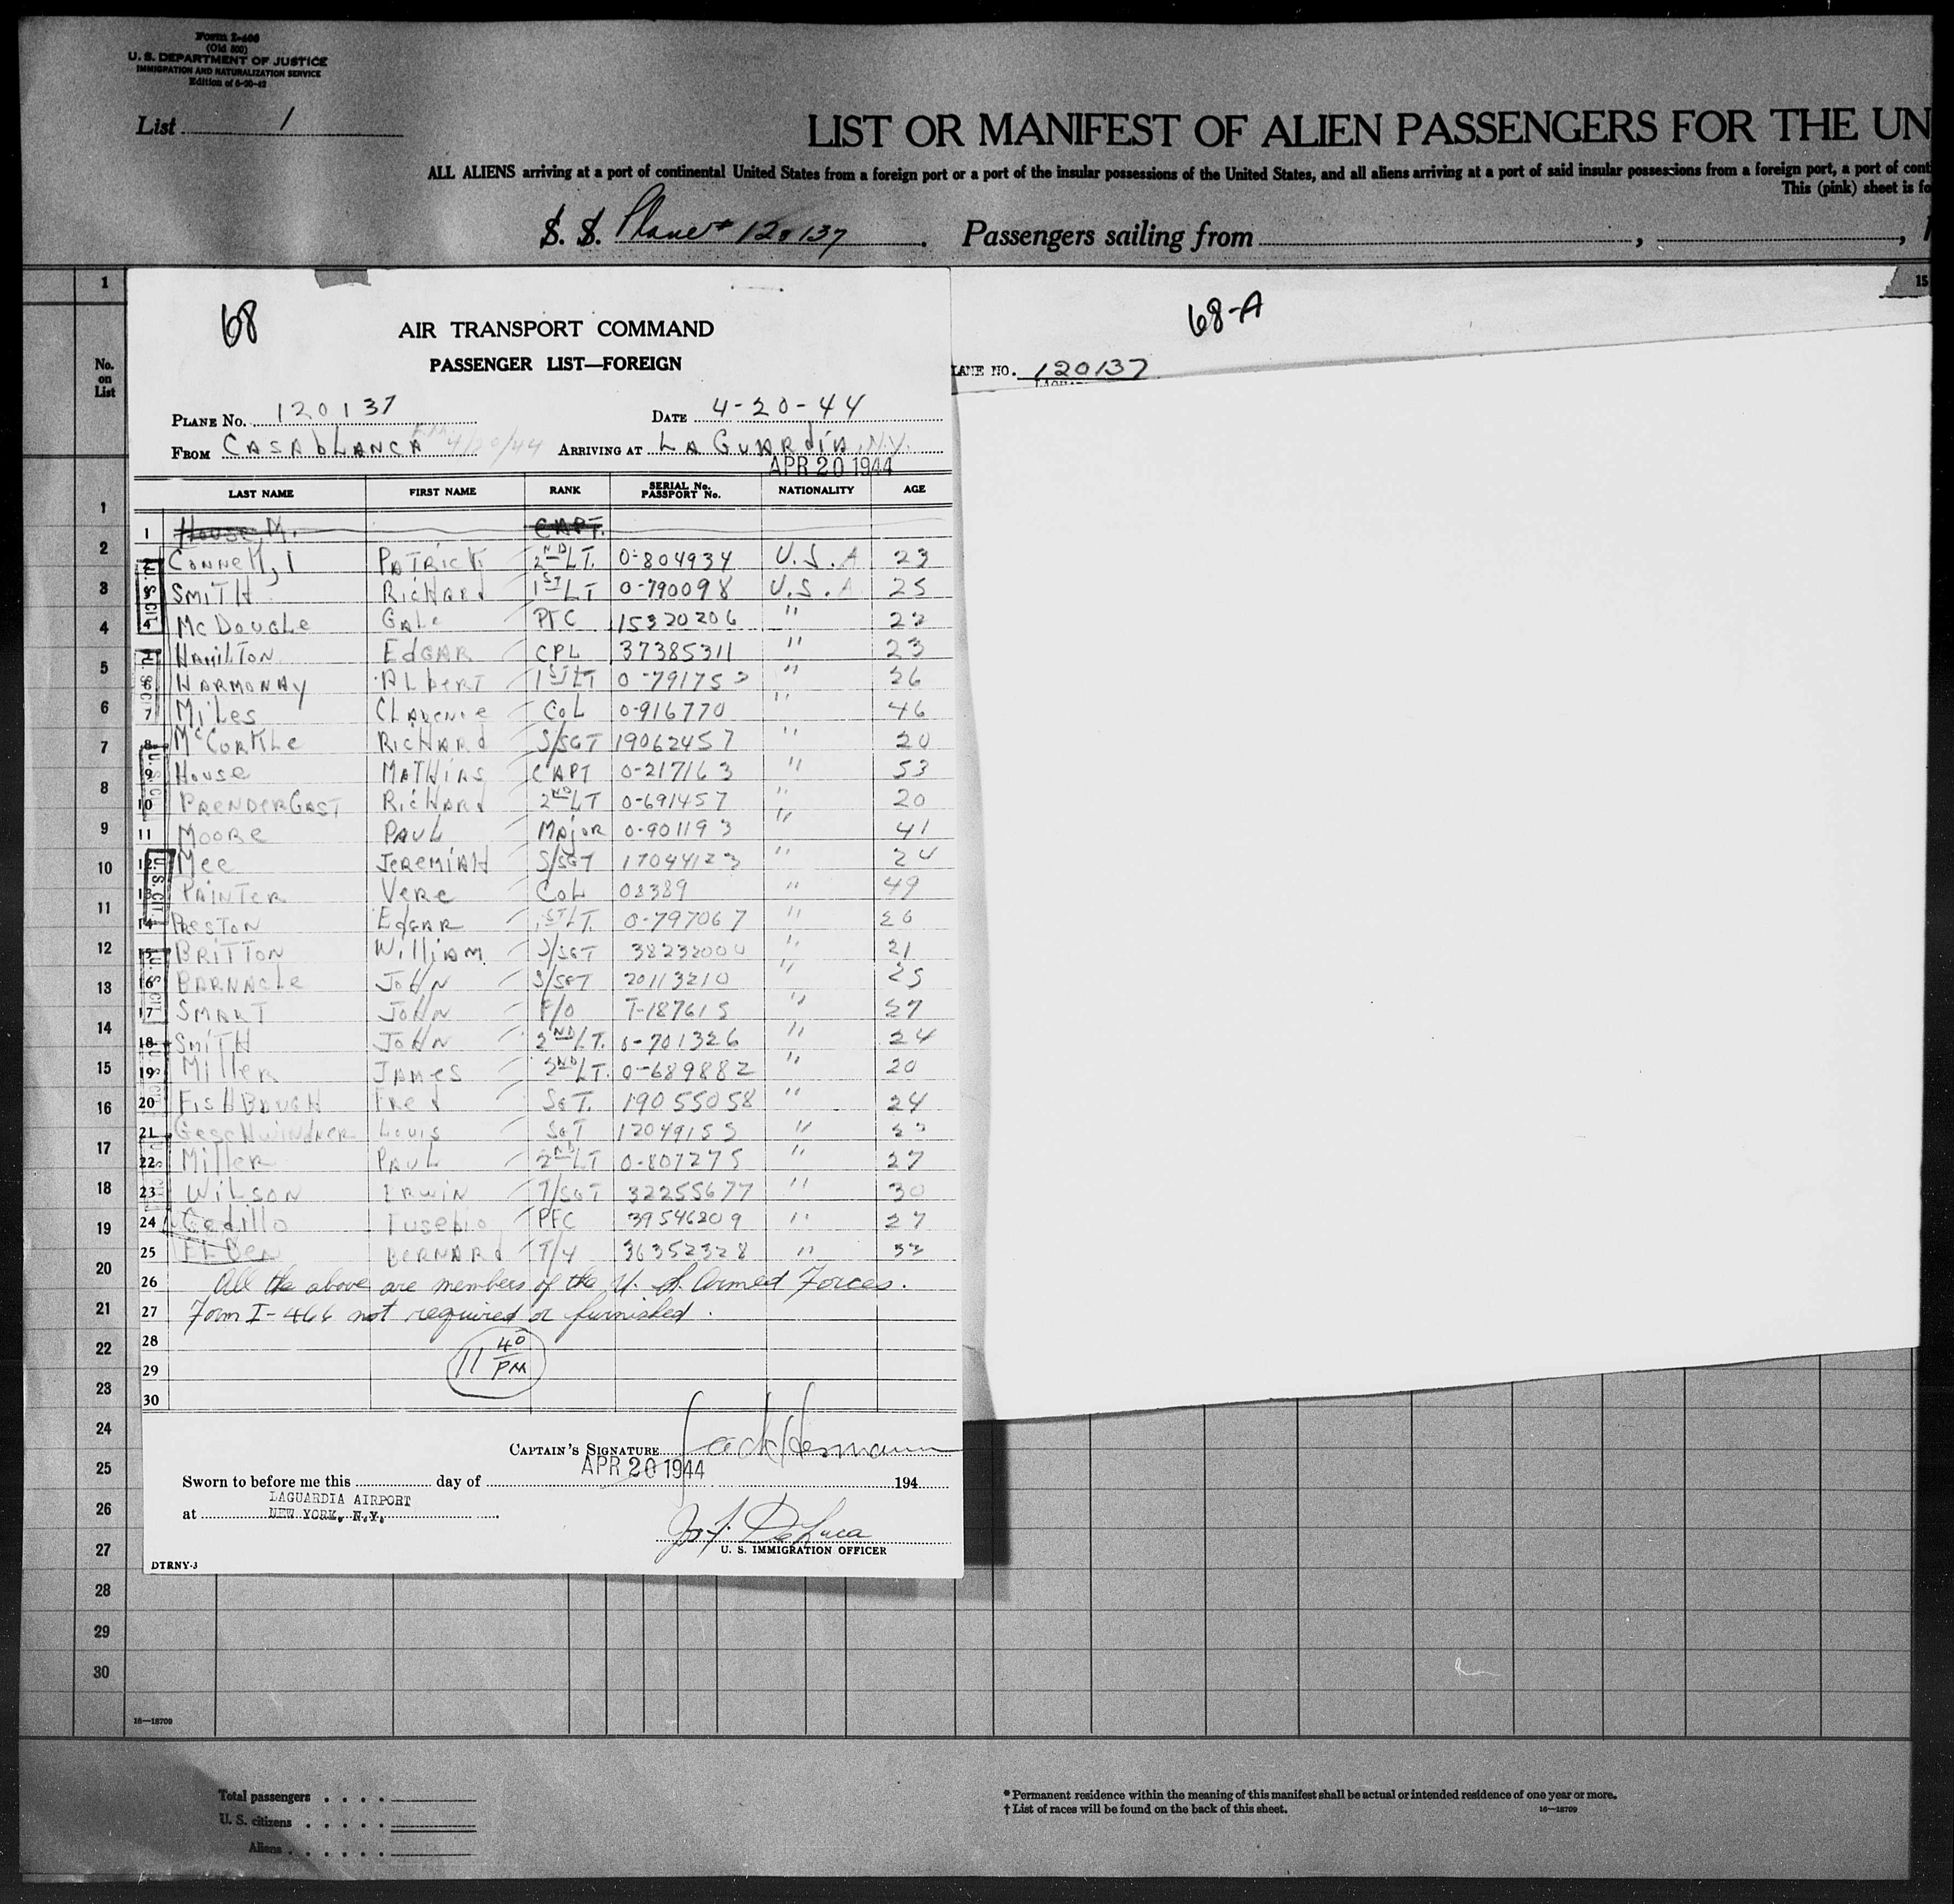 Form I-466
(Old 500)
U. S. DEPARTMENT OF JUSTICE
IMMIGRATION AND NATURALIZATION SERVICE
Edition of 6-20-42
List 1
LIST OR MANIFEST OF ALIEN PASSENGERS FOR THE UN
ALL ALIENS arriving at a port of continental United States from a foreign port or a port of the insular possessions of the United States, and all aliens arriving at a port of said insular possessions from a foreign port, a port of cont
This (pink) sheet is fo
S. S. Plane # 120137. Passengers sailing from , ,
1 15
No. on List
68
68-A
AIR TRANSPORT COMMAND
PASSENGER LIST—FOREIGN
LANE NO. 120137
PLANE No. 120137 DATE 4-20-44
FROM CASABLANCA 4/20/44 ARRIVING AT LA GUARDIA, N.Y.
APR 20 1944
LAST NAME FIRST NAME RANK SERIAL No. PASSPORT No. NATIONALITY AGE
1 House M. CAPT.
2 Connell, PATRICK 2ND LT. 0-804934 U.S.A 23
3 SMITH RICHARD 1ST LT 0-790098 U.S.A 25
4 McDOUGLE GALE PFC 15320206 " 22
HAMILTON EDGAR CPL 37385311 " 23
HARMONAY ALBERT 1ST LT " 26
7 MILES CLARENCE COL 0-916770 " 46
8 McCORKLE RICHARD S/SGT 19062457 " 20
9 HOUSE MATHIAS CAPT 0-217163 " 53
10 PRENDERGAST RICHARD 2ND LT 0-691457 " 20
11 MOORE PAUL MAJOR 0-901193 " 41
12 MEE JEREMIAH S/SGT 17044123 " 24
13 PAINTER VERE COL 08389 " 49
14 PRESTON EDGAR 1ST LT. 0-797067 " 26
15 BRITTON WILLIAM S/SGT 38232000 " 21
16 BARNACLE JOHN S/SGT 20113210 " 25
17 SMART JOHN F/O T-187615 " 27
18 SMITH JOHN 2ND LT. 0-701326 " 24
19 MILLER JAMES 2ND LT. 0-689882 " 20
20 FISHBAUGH FRED SGT. 19055058 " 24
21 GESCHWINDNER LOUIS SGT 12049155 "
22 MILLER PAUL 2ND LT 0-807275 " 27
23 WILSON ERWIN T/SGT 32255677 " 30
24 Cedillo Eusebio PFC 39546209 " 27
25 BERNARD T/4 36352328 "
26 All the above are members of the U. S. Armed Forces.
27 Form I-466 not required or furnished.
28
29
30
11 40 PM
CAPTAIN'S SIGNATURE Jack Hermann
APR 20 1944
Sworn to before me this day of 194
LAGUARDIA AIRPORT
at NEW YORK, N.Y.
Jos. F. DeLuca
U. S. IMMIGRATION OFFICER
DTRNY-3
U. S. CIT.
1
2
3
4
5
6
7
8
9
10
11
12
13
14
15
16
17
18
19
20
21
22
23
24
25
26
27
28
29
30
16—18709
Total passengers . . . .
U. S. citizens . . . . .
Aliens . . . . . .
* Permanent residence within the meaning of this manifest shall be actual or intended residence of one year or more.
† List of races will be found on the back of this sheet. 16—18709